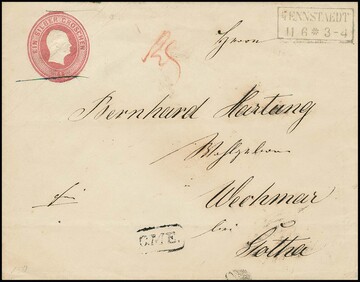 EIN SILBER GROSCHEN
TENNSTAEDT
11 6 * 3-4
Herrn
Bernhard Hartung
Wohlgeboren
Wechmar
bei
Gotha
fr